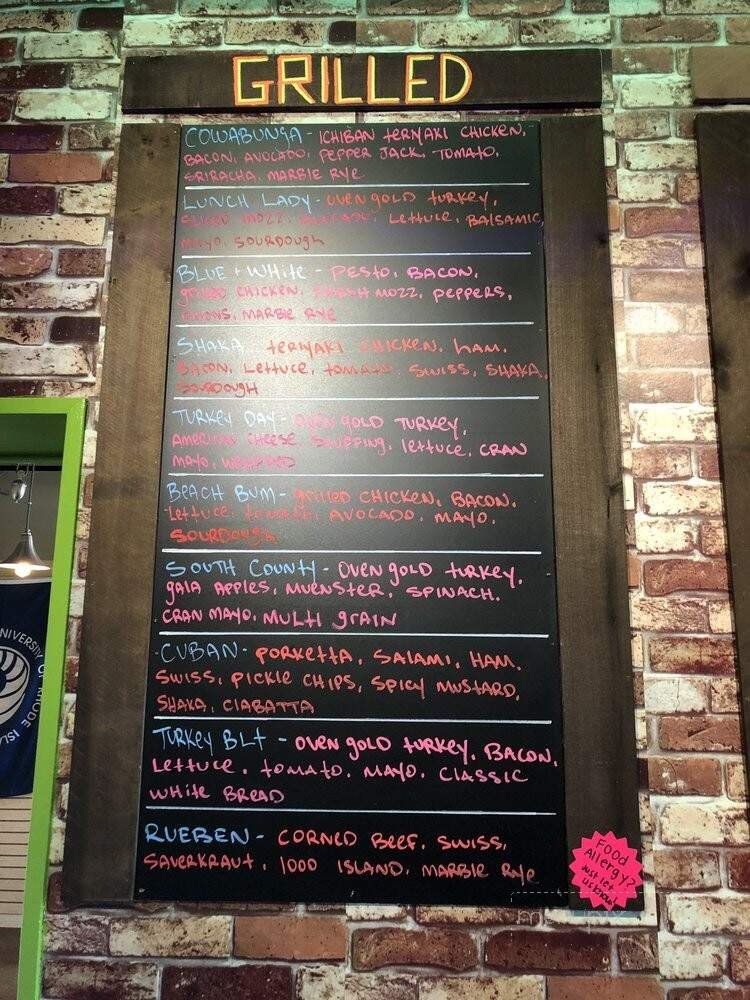 GRILLED
COWABUNGA - ICHIBAN TERYAKI CHICKEN,
BACON, AVOCADO, PEPPER JACK, TOMATO,
SRIRACHA, MARBLE RYE
LUNCH LADY - OVEN GOLD TURKEY,
SLICED MOZZ, AVOCADO, LETTUCE, BALSAMIC
MAYO, SOURDOUGH
BLUE + WHITE - PESTO, BACON,
GRILLED CHICKEN, FRESH MOZZ, PEPPERS,
ONIONS, MARBLE RYE
SHAKA TERYAKI CHICKEN, HAM,
BACON, LETTUCE, TOMATO SWISS, SHAKA,
SOURDOUGH
TURKEY DAY - OVEN GOLD TURKEY,
AMERICAN CHEESE STUFFING, LETTUCE, CRAN
MAYO, WRAPPED
BEACH BUM - GRILLED CHICKEN, BACON,
LETTUCE, TOMATO, AVOCADO, MAYO,
SOURDOUGH
SOUTH COUNTY - OVEN GOLD TURKEY,
GALA APPLES, MUENSTER, SPINACH,
CRAN MAYO, MULTI GRAIN
CUBAN - PORKETTA, SALAMI, HAM,
SWISS, PICKLE CHIPS, SPICY MUSTARD,
SHAKA, CIABATTA
TURKEY BLT - OVEN GOLD TURKEY, BACON,
LETTUCE, TOMATO, MAYO, CLASSIC
WHITE BREAD
RUEBEN - CORNED BEEF, SWISS,
SAUERKRAUT, 1000 ISLAND, MARBLE RYE
Food
Allergy?
Just let
us know!
UNIVERSITY OF RHODE ISL